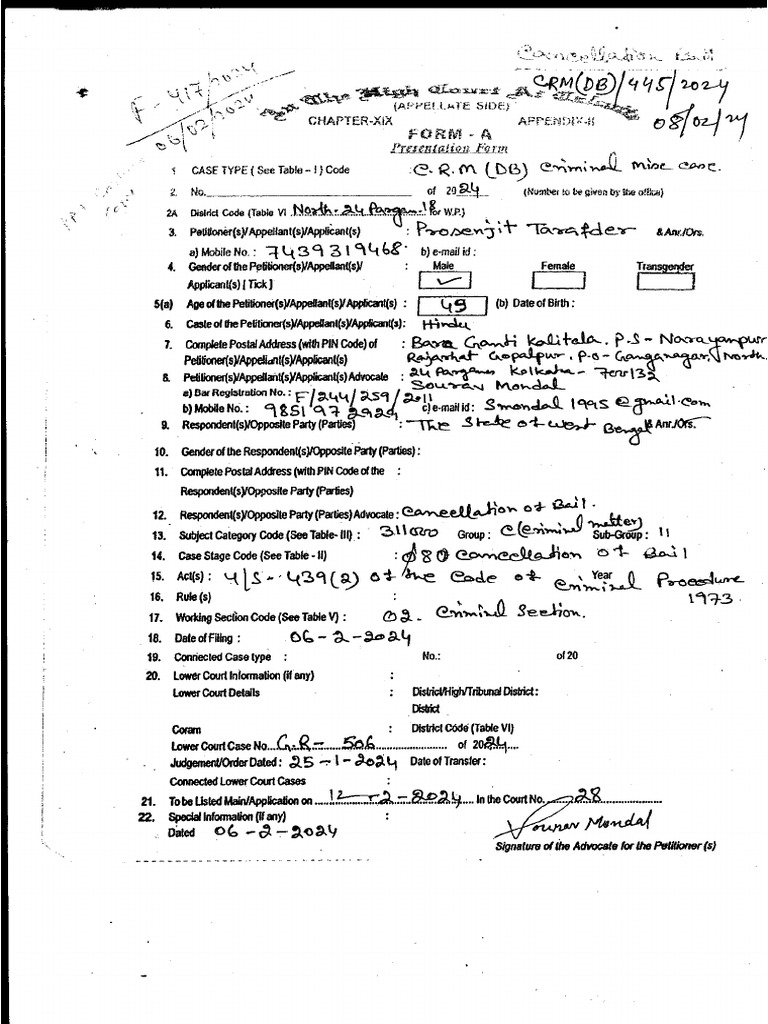 Cancellation Bail
F-417/2024
06/02/2024
CRM(DB)/445/2024
08/02/24
In The High Court At
(APPELLATE SIDE)
CHAPTER-XIX APPENDIX-II
FORM - A
Presentation Form
1 CASE TYPE ( See Table – I ) Code : C.R.M (DB) Criminal Misc case.
2. No. of 2024 (Number to be given by the office)
2A District Code (Table VI North-24 Pargan-18 for W.P.)
3. Petitioner(s)/Appellant(s)/Applicant(s) : Prosenjit Tarafder & Anr./Ors.
a) Mobile No. : 7439319468. b) e-mail id :
4. Gender of the Petitioner(s)/Appellant(s)/ : Male Female Transgender
Applicant(s) [ Tick ] ✓
5(a) Age of the Petitioner(s)/Appellant(s)/Applicant(s) : 49 (b) Date of Birth :
6. Caste of the Petitioner(s)/Appellant(s)/Applicant(s): Hindu
7. Complete Postal Address (with PIN Code) of : Bara Ganti Kalitala. P.S – Narayanpur
Petitioner(s)/Appellant(s)/Applicant(s) Rajarhat Gopalpur, P.O – Ganganagar, North
24 Parganas Kolkata – 700132
8. Petitioner(s)/Appellant(s)/Applicant(s) Advocate : Sourav Mondal
a) Bar Registration No. : F/244/259/2011
b) Mobile No. : 9851972924 c) e-mail id : Smondal1995@gmail.com
9. Respondent(s)/Opposite Party (Parties) : The State of West Bengal & Anr./Ors.
10. Gender of the Respondent(s)/Opposite Party (Parties) :
11. Complete Postal Address (with PIN Code of the :
Respondent(s)/Opposite Party (Parties)
12. Respondent(s)/Opposite Party (Parties) Advocate : Cancellation of Bail.
13. Subject Category Code (See Table- III) : 311000 Group : C(Criminal matter) Sub-Group : 11
14. Case Stage Code (See Table - II) : 080 Cancellation of Bail
15. Act(s) : U/S – 439(2) of the Code of Year Criminal Procedure
1973
16. Rule (s) :
17. Working Section Code (See Table V) : 02. Criminal Section.
18. Date of Filing : 06-2-2024
19. Connected Case type : No.: of 20
20. Lower Court Information (if any) :
Lower Court Details : District/High/Tribunal District :
District
Coram : District Code (Table VI)
Lower Court Case No. G.R – 506 of 2024
Judgement/Order Dated : 25-1-2024 Date of Transfer :
Connected Lower Court Cases :
21. To be Listed Main/Application on 12-2-2024 In the Court No. 28
22. Special Information (if any) :
Dated 06-2-2024
Sourav Mondal
Signature of the Advocate for the Petitioner (s)